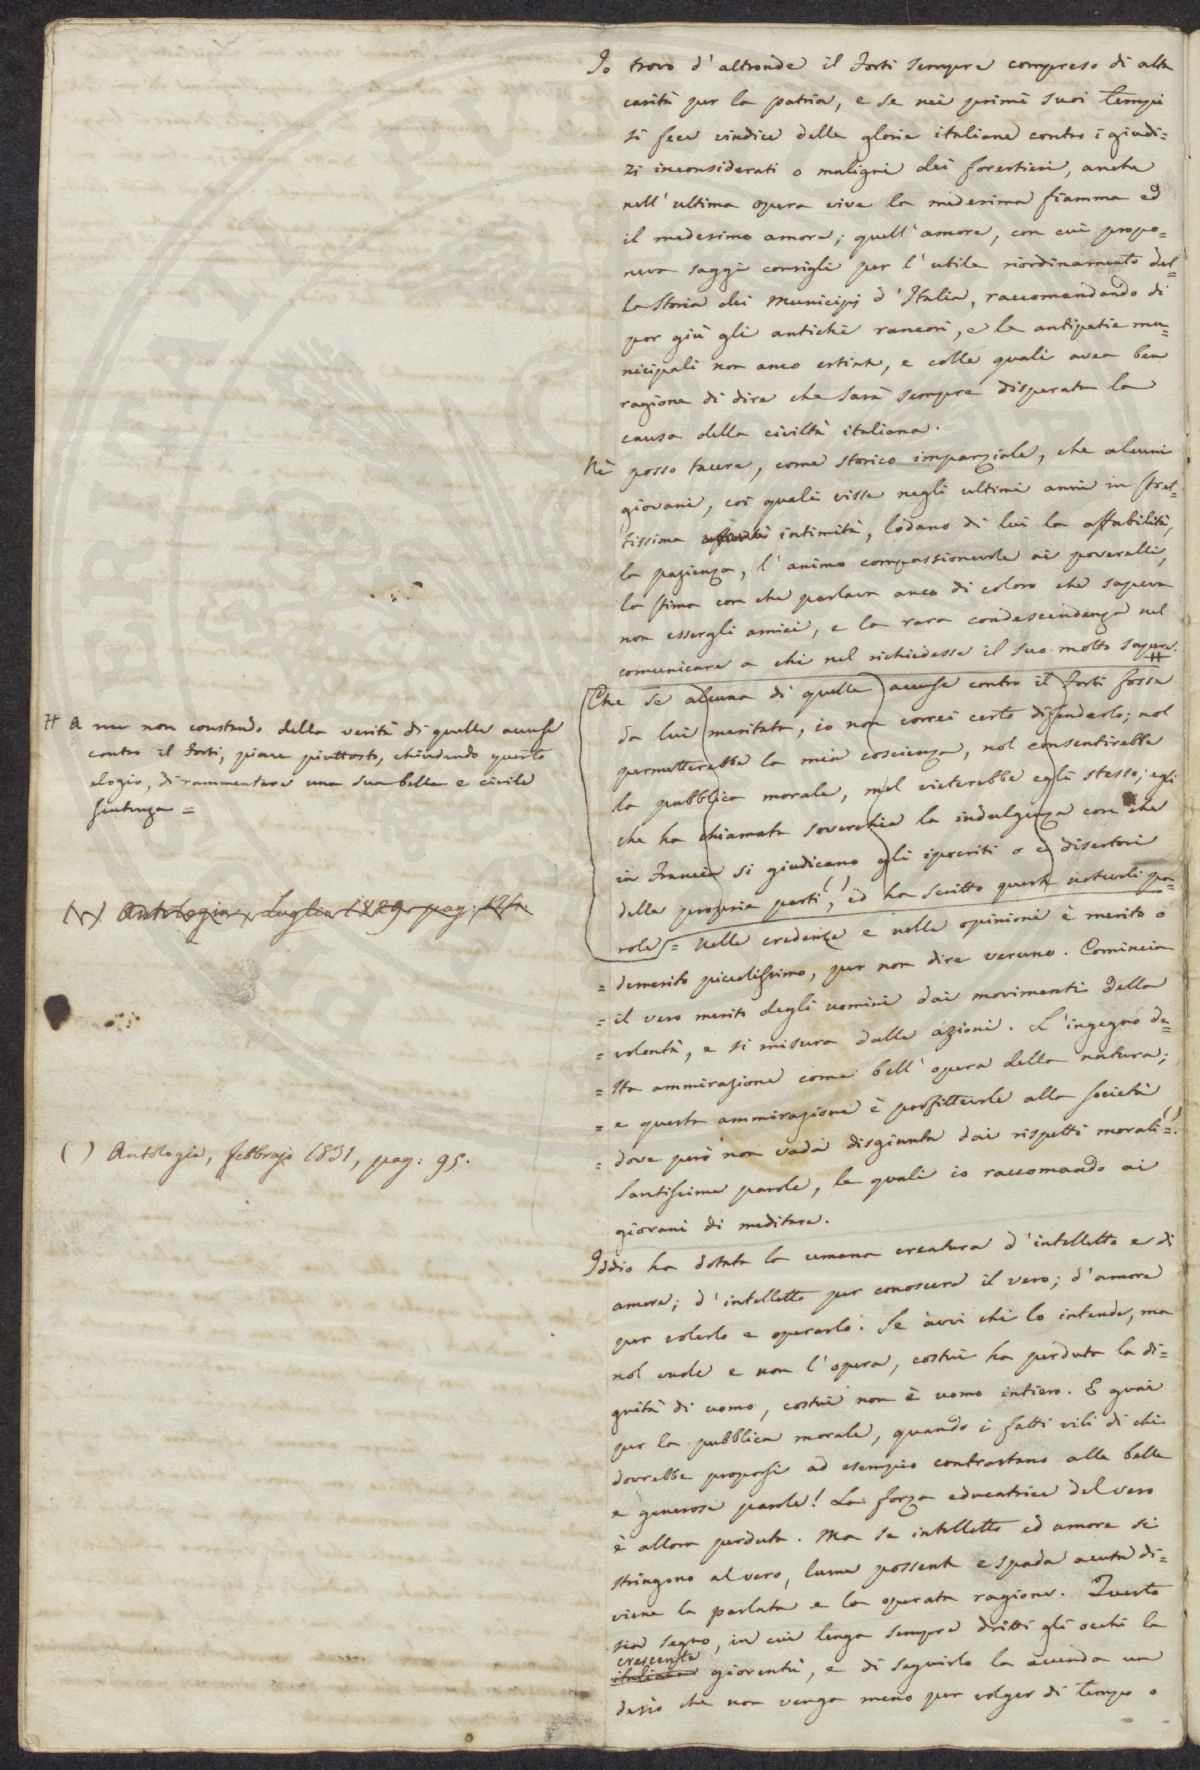 Io trovo d'altronde il Forti sempre compreso di alta
carità per la patria, e se nei primi suoi tempi
si fece vindice delle glorie italiane contro i giudi=
zi inconsiderati o maligni dei forestieri, anche
nell'ultima opera vive la medesima fiamma ed
il medesimo amore; quell'amore, con cui propo=
neva saggi consigli per l'utile riordinamento del=
la Storia dei Municipj d'Italia, raccomandando di
por giù gli antichi rancori, e le antipatie mu=
nicipali non anco estinte, e colle quali avea ben
ragione di dire che sarà sempre disperata la
causa della civiltà italiana.
Nè posso tacere, come storico imparziale, che alcuni
giovani, coi quali visse negli ultimi anni in stret=
tissima intimità, lodano di lui la affabilità,
la pazienza, l'animo compassionevole ai poverelli,
la stima con che parlava anco di coloro che sapeva
non essergli amici, e la rara condescendenza nel
comunicare a chi nel richiedesse il suo molto sapere. #
Che se alcuna di quelle accuse contro il Forti fosse
da lui meritata, io non vorrei certo difenderlo; nol
permetterebbe la mia coscienza, nol consentirebbe
la pubblica morale, mel vieterebbe egli stesso; egli
che ha chiamata soverchia la indulgenza con che
in Francia si giudicano gli ipocriti o i disertori
della propria parte ( ), ed ha scritto queste notevoli pa=
role = Nelle credenze e nelle opinioni è merito o
= demerito piccolissimo, per non dire veruno. Comincia
= il vero merito degli uomini dai movimenti della
= volontà, e si misura dalle azioni. L'ingegno de=
= sta ammirazione come bell'opera della natura;
= e questa ammirazione è profittevole alla società
= dove però non vada disgiunta dai rispetti morali = ( ).
Santissime parole, le quali io raccomando ai
giovani di meditare.
Iddio ha dotata la umana creatura d'intelletto e di
amore; d'intelletto per conoscere il vero; d'amore
per volerlo e operarlo. Se avvi chi lo intende, ma
nol vuole e non l'opera, costui ha perduta la di=
gnità di uomo, costui non è uomo intiero. E guai
per la pubblica morale, quando i fatti vili di chi
dovrebbe proporsi ad esempio contrastano alle belle
e generose parole! La forza educatrice del vero
è allora perduta. Ma se intelletto ed amore si
stringono al vero, lume possente e spada acuta di=
viene la parlata e la operata ragione. Questo
sia segno, in cui tenga sempre diritti gli occhi la
crescente
italiana gioventù, e di seguirlo la accenda un
desio che non venga meno per volger di tempo o
# A me non constando della verità di quelle accuse
contro il Forti, piace piuttosto, chiudendo questo
elogio, di rammentare una sua bella e civile
sentenza =
( ) Antologia, Luglio 1829. pag:
( ) Antologia, Febbrajo 1831, pag: 95.